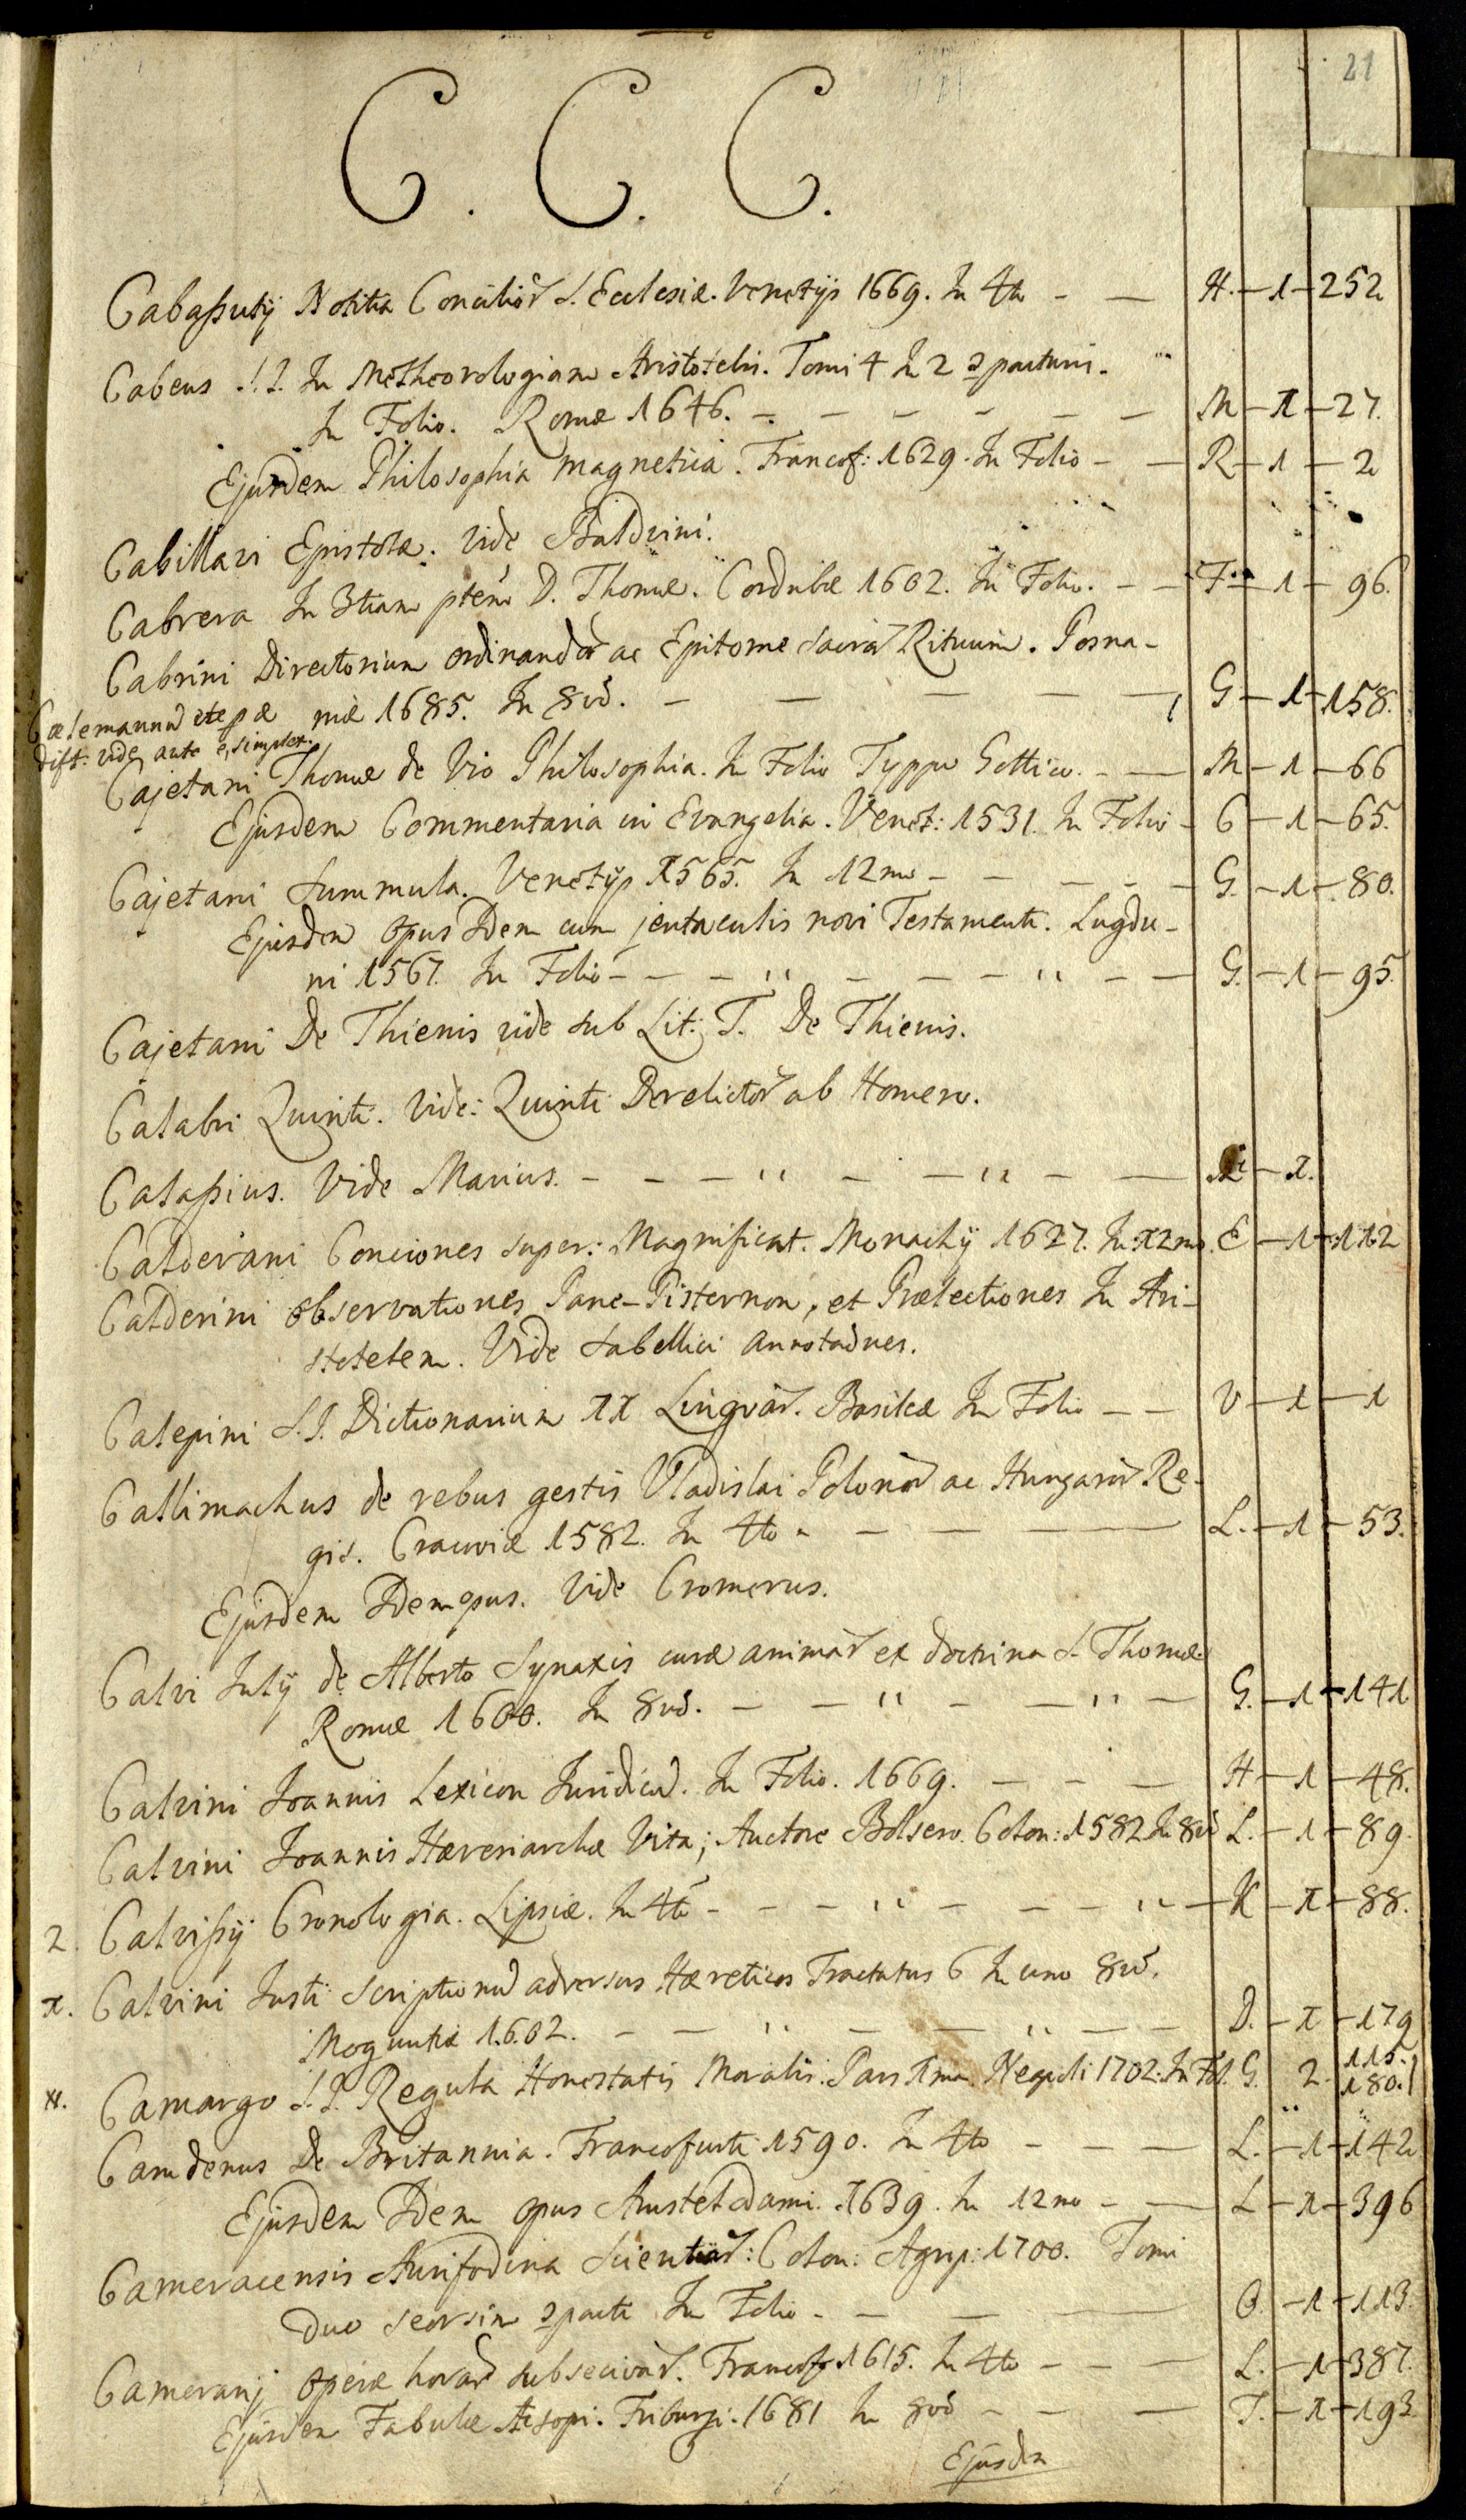 21
C. C. C.
Cabaßutÿ Notitia Concilior̄ S. Ecclesiæ. Venetÿs 1669. In 4to - — H. - 1 - 252
Cabeus S.I. In Metheorologiam Aristotelis. Tomi 4 In 2
In Folio. Romæ 1646. - - - - - - M - 1 - 27.
Ejusdem Philosophia magnetica. Francof: 1629. In Folio - - R - 1 - 2
Cabillavi Epistolæ. Vide Baldvini.
Cabrera In 3tiam ptem D. Thomæ. Cordubæ 1602. In Folio. - - F - 1 - 96.
Cabrini Directorium ordinandor̄ ac Epitome Sacror̄ Rituum. Posna-
niæ 1685. In 8vo. - - - - - G - 1 - 158.
Calemannu
dist: vide ante simplex.
Cajetani Thomæ de Vio Philosophia. In Folio Typpo Gottico. - — M - 1 - 66
Ejusdem Commentaria in Evangelia. Venet: 1531. In Folio - C - 1 - 65.
Cajetani Summula. Venetÿs 1565. In 12mo - - - - - G. - 1 - 80.
Ejusdem opus Idem cum jentaculis novi Testamenti. Lugdu-
ni 1567. In Folio - - - " - - - " - - G. - 1 - 95.
Cajetani De Thienis vide sub Lit: T. De Thienis.
Calabri Quinti. Vide: Quinti Derelictor̄ ab Homero.
Calaßius. Vide Marius. - - - " - - " - — - 1.
Calderani Conciones super: Magnificat. Monachÿ 1627. In 12mo. E - 1 - 112
Calderini observationes Pane-Pisternon, et Prælectiones In Ari-
stotelem. Vide Sabellici Annotaōnes.
Calepini S.I. Dictionarium 11 Lingvar̄. Basileæ In Folio - - V - 1 - 1
Callimachus de rebus gestis Vladislai Polonor̄ ac Hungaror̄ Re-
gis. Cracoviæ 1582. In 4to - - - — L. - 1 - 53.
Ejusdem Idem opus. Vide Cromerus.
Calvi Julÿ de Alberto Synaxis curæ animar̄ ex doctrina S. Thomæ.
Romæ 1600. In 8vo. - - " - - " - G. - 1 - 141
Calvini Joannis Lexicon Juridicu̅. In Folio. 1669. - - - H - 1 - 48.
Calvini Joannis Hæresiarchæ Vita; Auctore Bolsero. Colon: 1582 In 8vo L. - 1 - 89.
2. Calvißÿ Cronologia. Lipsiæ. In 4to - - - " - - - " - K - 1 - 88.
x. Calvini Justi Scriptionu̅ adversus Hæreticos Tractatus 6 In uno 8vo.
Moguntiæ 1602. - - " - - " - - D. - 1 - 179
x. Camargo S.I. Regula Honestatis Moralis. Pars 1ma. Neapoli 1702. In Fol. G. 2. 115. 180.
Camdenus De Britannia. Francofurti 1590. In 4to - - — L. - 1 - 142
Ejusdem Idem opus Amstelodami. 1639. In 12mo - — L - 1 - 396
Cameracensis Aurifodina Scientiar̄: Colon: Agrip: 1700. Tomi
Duo seorsim In Folio - - - — O. - 1 - 113.
Camerarij Operæ horar̄ subsecivar̄. Francof 1615. In 4to - - — L. - 1 - 387.
Ejusdem Fabulæ Æsopi. Friburgi. 1681 In 8vo - - — T. - 1 - 193.
Ejusdem